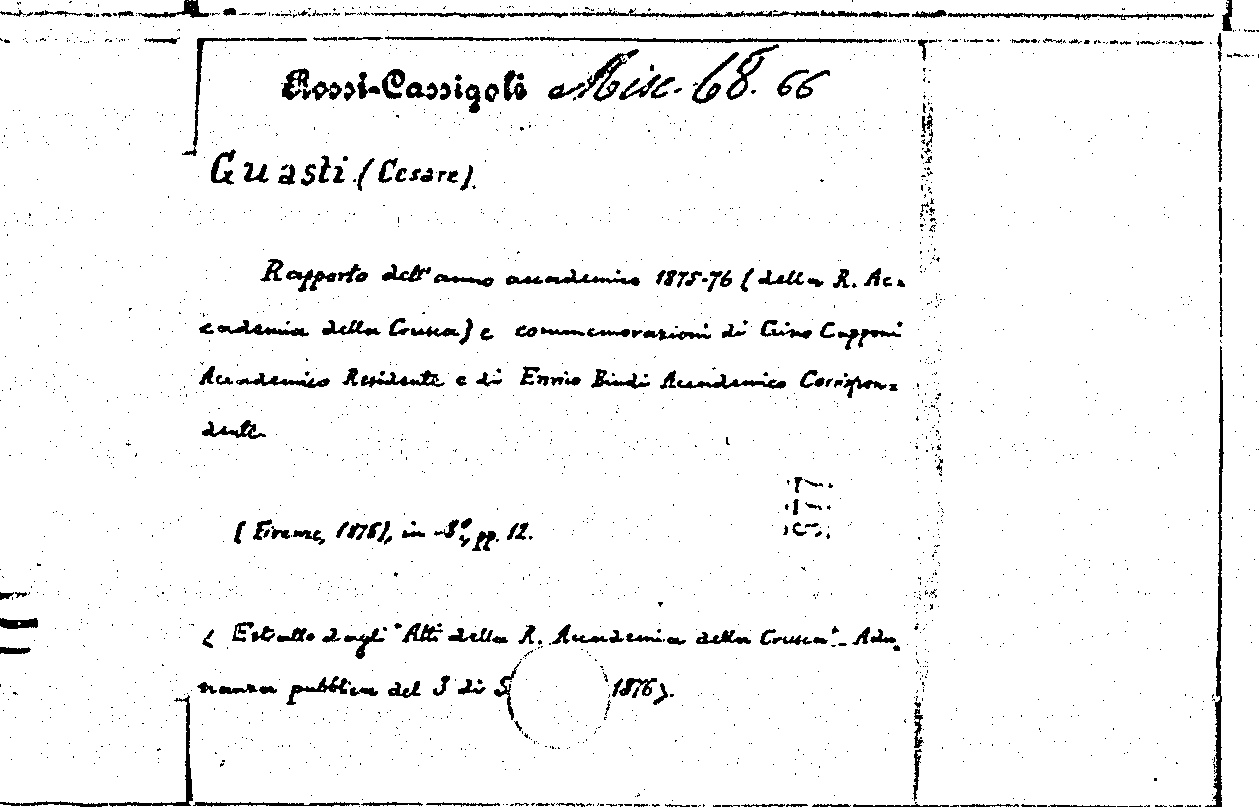 Rossi-Cassigoli Misc. 68. 66
Guasti (Cesare).
Rapporto dell'anno accademico 1875-76 (della R. Ac=
cademia della Crusca) e commemorazioni di Gino Capponi
Accademico Residente e di Ennio Bindi Accademico Corrispon=
dente.
(Firenze, 1876), in-8°, pp. 12.
( Estratto dagli "Atti della R. Accademia della Crusca" - Adu=
nanza pubblica del 3 di S 1876).